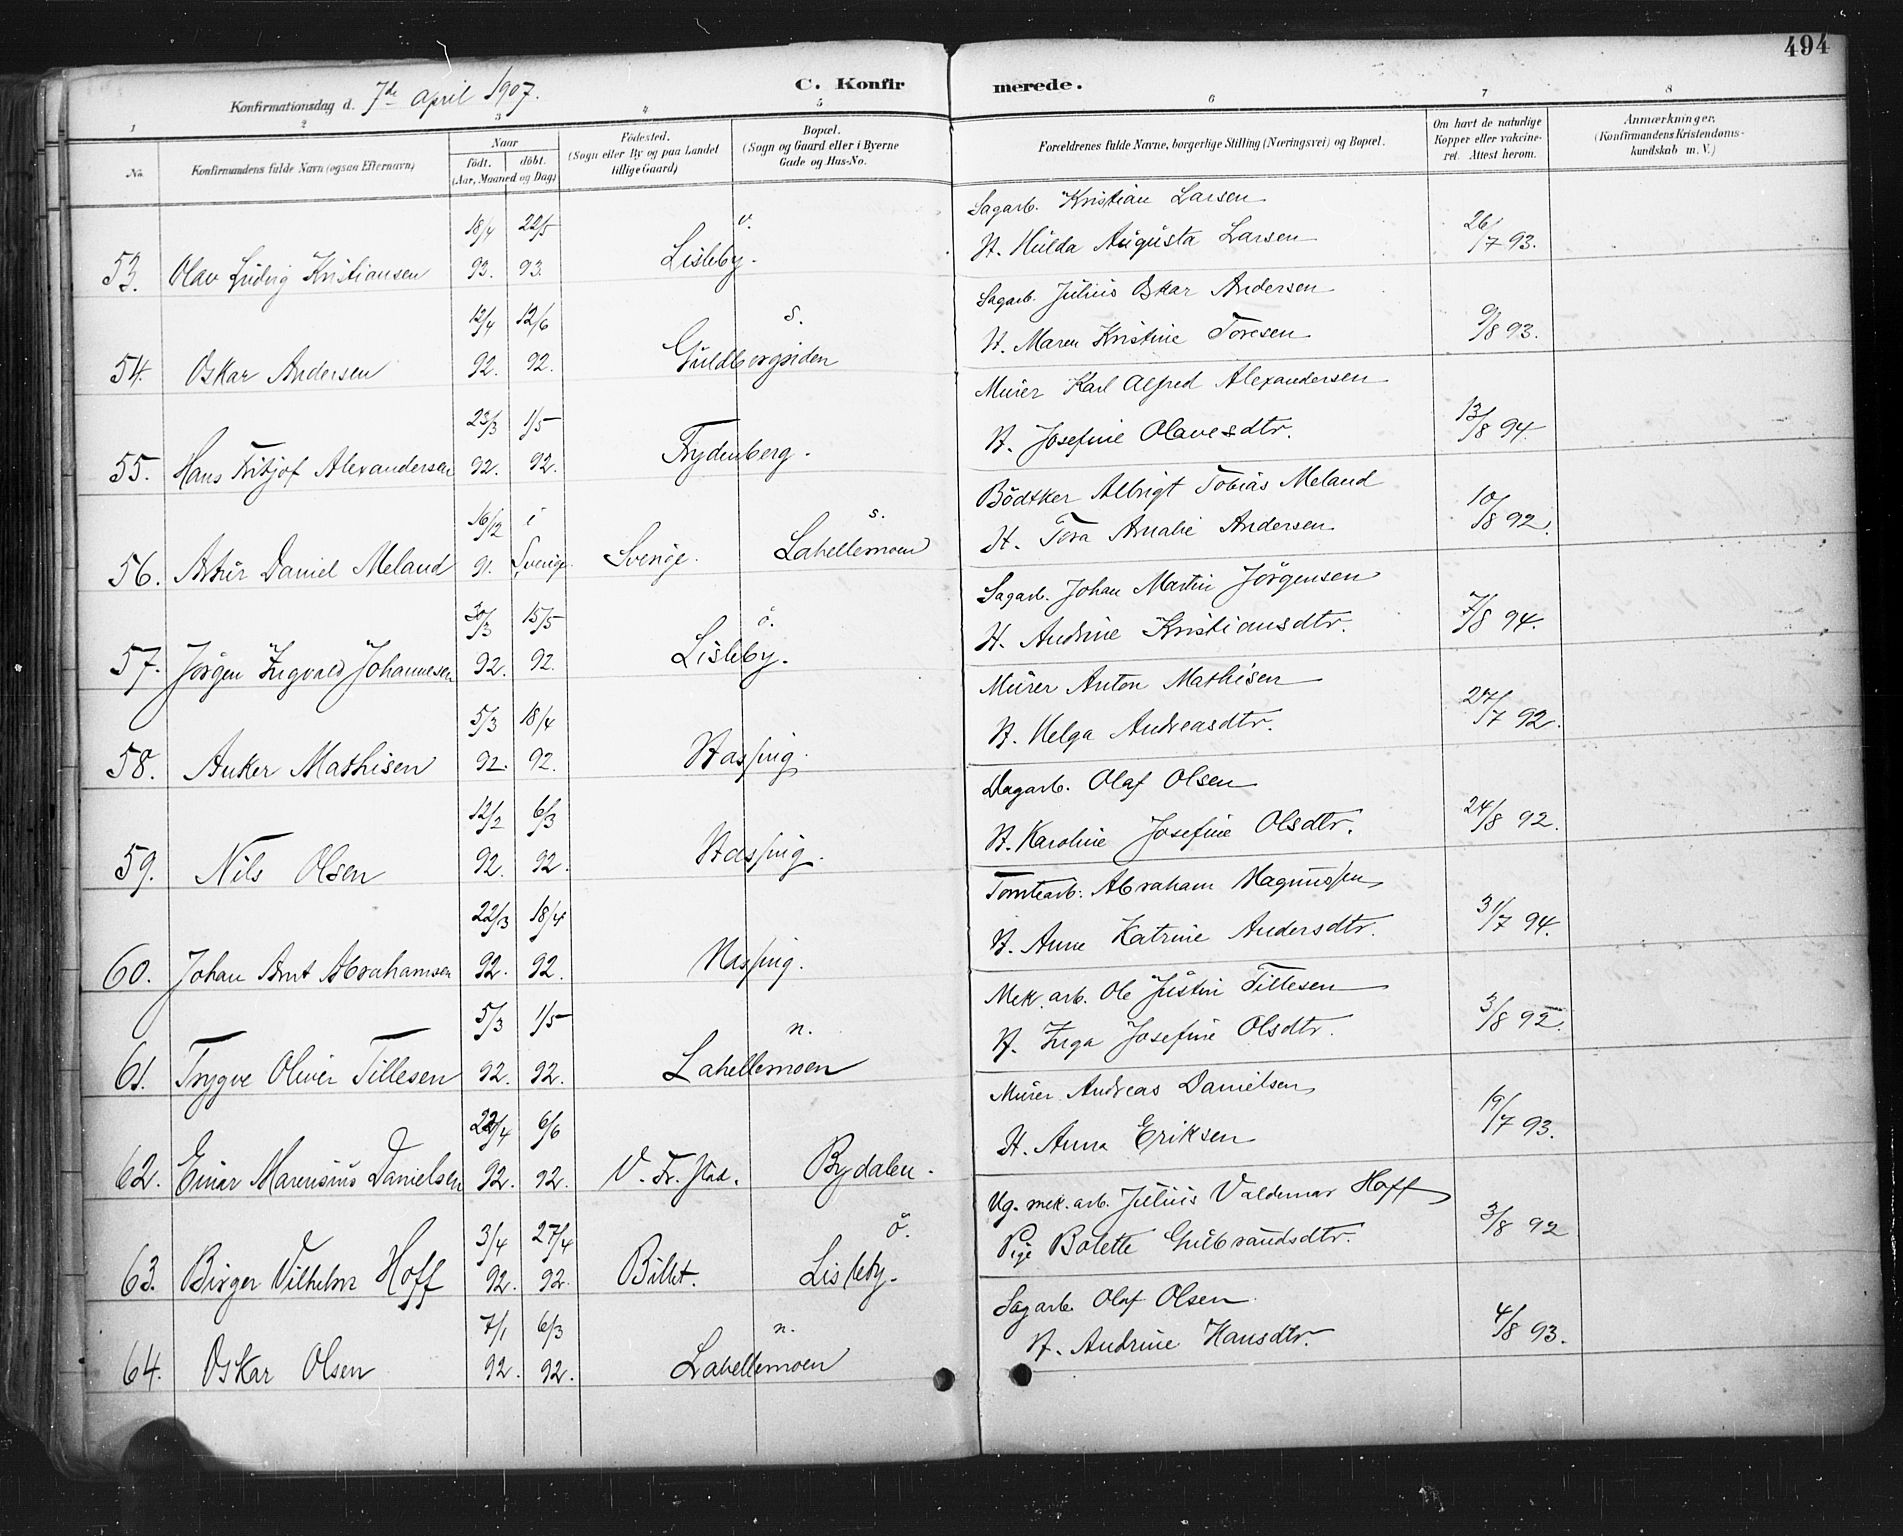 494
Konfirmationsdag d. 7de april 1907. C. Konfirmerede.
1 2 3 4 5 6 7 8
No. Konfirmandens fulde Navn (ogsaa Efternavn) Naar født. døbt. (Aar, Maaned og Dag) Fødested. (Sogn eller By og paa Landet tillige Gaard) Bopæl. (Sogn og Gaard eller i Byerne Gade og Hus-No. Forældrenes fulde Navne, borgerlige Stilling (Næringsvei) og Bopæl. Om havt de naturlige Kopper eller vakcineret. Attest herom. Anmærkninger. (Konfirmandens Kristendomskundskab m. V.)
18/4 22/5 v. Sagarb. Kristian Larsen 26/7 93.
53. Olav Ludvig Kristiansen 93. 93. Lisleby. H. Hulda Augusta Larsen
12/4 12/6 s. Sagarb. Julius Oskar Andersen 9/8 93.
54. Oskar Andersen 92. 92. Guldbergsiden H. Maren Kristine Toresen
23/3 1/5 Murer Karl Alfred Alexandersen 13/8 94.
55. Hans Fritjof Alexandersen 92. 92. Frydenberg. H. Josefine Olavesdtr.
16/12 i s. Bödtker Albrigt Tobias Meland 10/8 92.
56. Artur Daniel Meland 91. Sverige Sverige. Lahellemoen H. Tora Amalie Andersen
30/3 15/5 ö. Sagarb. Johan Martin Jörgensen 7/8 94.
57. Jörgen Ingvald Johannesen 92. 92. Lisleby. H. Andrine Kristiansdtr.
5/3 18/4 Murer Anton Mathisen 27/7 92.
58. Anker Mathisen 92. 92. Hasfing. H. Helga Andreasdtr.
12/2 6/3 Dagarb. Olaf Olsen 24/8 92.
59. Nils Olsen 92. 92. Hasfing. H. Karoline Josefine Olsdtr.
22/3 18/4 Tomtearb. Abraham Magnussen 31/7 94.
60. Johan Arnt Abrahamsen 92. 92. Hasfing. H. Anne Katrine Andersdtr.
5/3 1/5 n. Mek. arb. Ole Justin Tillesen 3/8 92.
61. Trygve Oliver Tillesen 92. 92. Lahellemoen H. Inga Josefine Olsdtr.
6/6 Murer Andreas Danielsen 19/7 93.
62. Einar Marensius Danielsen 92. 92. V. Fr.stad. Bydalen. H. Anna Eriksen
3/4 27/4 ö. Ug. mek. arb. Julius Valdemar Hoff 3/8 92
63. Birger Vilhelm Hoff 92. 92. Lisleby. Pige Bolette Gulbrandsdtr.
7/1 6/3 n. Sagarb. Olaf Olsen 4/8 93.
64. Oskar Olsen 92. 92. Lahellemoen H. Andrine Hansdtr.